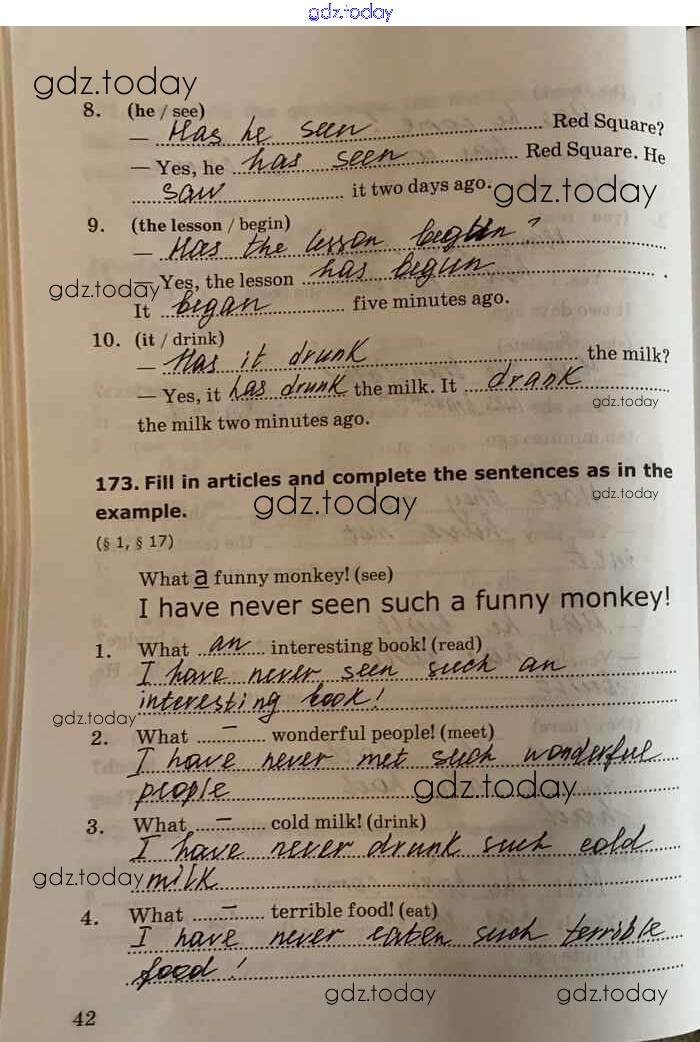 gdz.today
gdz.today
8. (he / see)
— Has he seen Red Square?
— Yes, he has seen Red Square. He
saw it two days ago. gdz.today
9. (the lesson / begin)
— Has the lesson begun?
gdz.today — Yes, the lesson has begun.
It began five minutes ago.
10. (it / drink)
— Has it drunk the milk?
— Yes, it has drunk the milk. It drank
gdz.today
the milk two minutes ago.
173. Fill in articles and complete the sentences as in the
gdz.today gdz.today
example.
(§ 1, § 17)
What a funny monkey! (see)
I have never seen such a funny monkey!
1. What an interesting book! (read)
I have never seen such an
interesting book!
gdz.today
2. What – wonderful people! (meet)
I have never met such wonderful
people gdz.today
3. What – cold milk! (drink)
I have never drunk such cold
gdz.today milk
4. What – terrible food! (eat)
I have never eaten such terrible
food!
gdz.today gdz.today
42